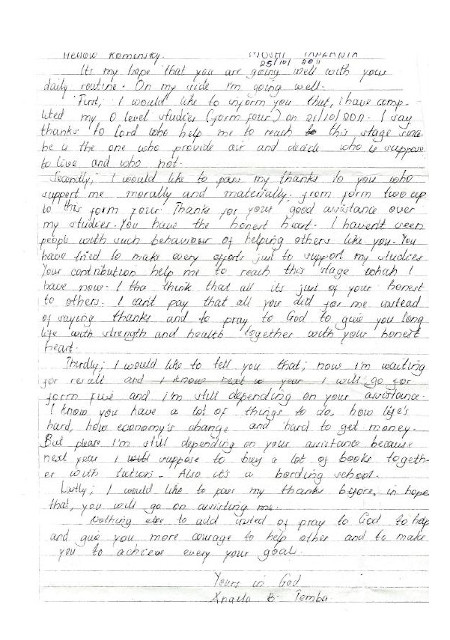 Hellow Kaminsky.    MOSHI TANZANIA
25/10/2011
It's my hope that you are going well with your
daily routine. On my side I'm going well.
First, I would like to inform you that, i have comp-
lited my O level studies (form four) on 21/10/2011. I say
thanks to Lord who help me to reach to this stage since
he is the one who provide air and decide who is suppose
to live and who not.
Secondly; I would like to pass my thanks to you who
support me morally and materially. from form two up
to this form four. Thanks for your good assistance over
my studies. You have the honest heart. I haven't seen
people with such behaviour of helping others like you. You
have tried to make every efforts just to support my studies
Your contribution help me to reach this stage which I
have now. I tha think that all its just of your honest
to others. I can't pay that all you did for me instead
of saying thanks and to pray to God to give you long
life with strength and health together with your honest
heart.
Thirdly; I would like to tell you that; now I'm waiting
for result and I know next year I will go for
form five and i'm still depending on your assistance.
I know you have a lot of things to do, how life's
hard, how economy's change and hard to get money.
But please I'm still depending on your assistance because
next year I will suppose to buy a lot of books togeth-
er with tution. Also it's a bording school.
Lastly; I would like to pass my thanks before, in hope
that, you will go on assisting me.
Nothing else to add insted of pray to God to help
and give you more courage to help other and to make
you to achieve every your goal.
Yours in God
Angela B. Temba